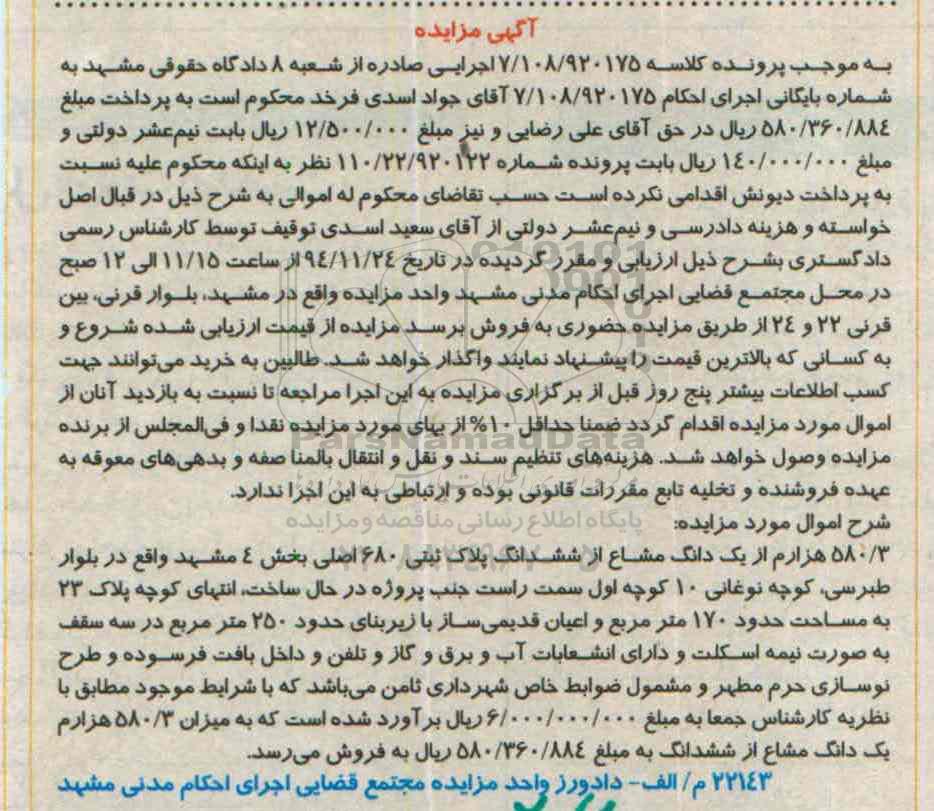 آگهی مزایده
به موجب پرونده کلاسه ۷/۱۰۸/۹۲۰۱۷۵ اجرایی صادره از شعبه ۸ دادگاه حقوقی مشهد به
شماره بایگانی اجرای احکام ۷/۱۰۸/۹۲۰۱۷۵ آقای جواد اسدی فرخد محکوم است به پرداخت مبلغ
۵۸۰/۳۶۰/۸۸٤ ریال در حق آقای علی رضایی و نیز مبلغ ۱۲/۵۰۰/۰۰۰ ریال بابت نیم‌عشر دولتی و
مبلغ ۱٤۰/۰۰۰/۰۰۰ ریال بابت پرونده شماره ۱۱۰/۲۲/۹۲۰۱۲۲ نظر به اینکه محکوم علیه نسبت
به پرداخت دیونش اقدامی نکرده است حسب تقاضای محکوم له اموالی به شرح ذیل در قبال اصل
خواسته و هزینه دادرسی و نیم‌عشر دولتی از آقای سعید اسدی توقیف توسط کارشناس رسمی
دادگستری بشرح ذیل ارزیابی و مقرر گردیده در تاریخ ۹٤/۱۱/۲٤ از ساعت ۱۱/۱۵ الی ۱۲ صبح
در محل مجتمع قضایی اجرای احکام مدنی مشهد واحد مزایده واقع در مشهد، بلوار قرنی، بین
قرنی ۲۲ و ۲٤ از طریق مزایده حضوری به فروش برسد مزایده از قیمت ارزیابی شده شروع و
به کسانی که بالاترین قیمت را پیشنهاد نمایند واگذار خواهد شد. طالبین به خرید می‌توانند جهت
کسب اطلاعات بیشتر پنج روز قبل از برگزاری مزایده به این اجرا مراجعه تا نسبت به بازدید آنان از
اموال مورد مزایده اقدام گردد ضمنا حداقل ۱۰% از بهای مورد مزایده نقدا و فی‌المجلس از برنده
مزایده وصول خواهد شد. هزینه‌های تنظیم سند و نقل و انتقال بالمناصفه و بدهی‌های معوقه به
عهده فروشنده و تخلیه تابع مقررات قانونی بوده و ارتباطی به این اجرا ندارد.
شرح اموال مورد مزایده:
۵۸۰/۳ هزارم از یک دانگ مشاع از ششدانگ پلاک ثبتی ۶۸۰ اصلی بخش ٤ مشهد واقع در بلوار
طبرسی، کوچه نوغانی ۱۰ کوچه اول سمت راست جنب پروژه در حال ساخت، انتهای کوچه پلاک ۲۳
به مساحت حدود ۱۷۰ متر مربع و اعیان قدیمی‌ساز با زیربنای حدود ۲۵۰ متر مربع در سه سقف
به صورت نیمه اسکلت و دارای انشعابات آب و برق و گاز و تلفن و داخل بافت فرسوده و طرح
نوسازی حرم مطهر و مشمول ضوابط خاص شهرداری ثامن می‌باشد که با شرایط موجود مطابق با
نظریه کارشناس جمعا به مبلغ ۶/۰۰۰/۰۰۰/۰۰۰ ریال برآورد شده است که به میزان ۵۸۰/۳ هزارم
یک دانگ مشاع از ششدانگ به مبلغ ۵۸۰/۳۶۰/۸۸٤ ریال به فروش می‌رسد.
۲۲۱٤۳ م/ الف- دادورز واحد مزایده مجتمع قضایی اجرای احکام مدنی مشهد
ParsNamadData
پایگاه اطلاع رسانی مناقصه و مزایده